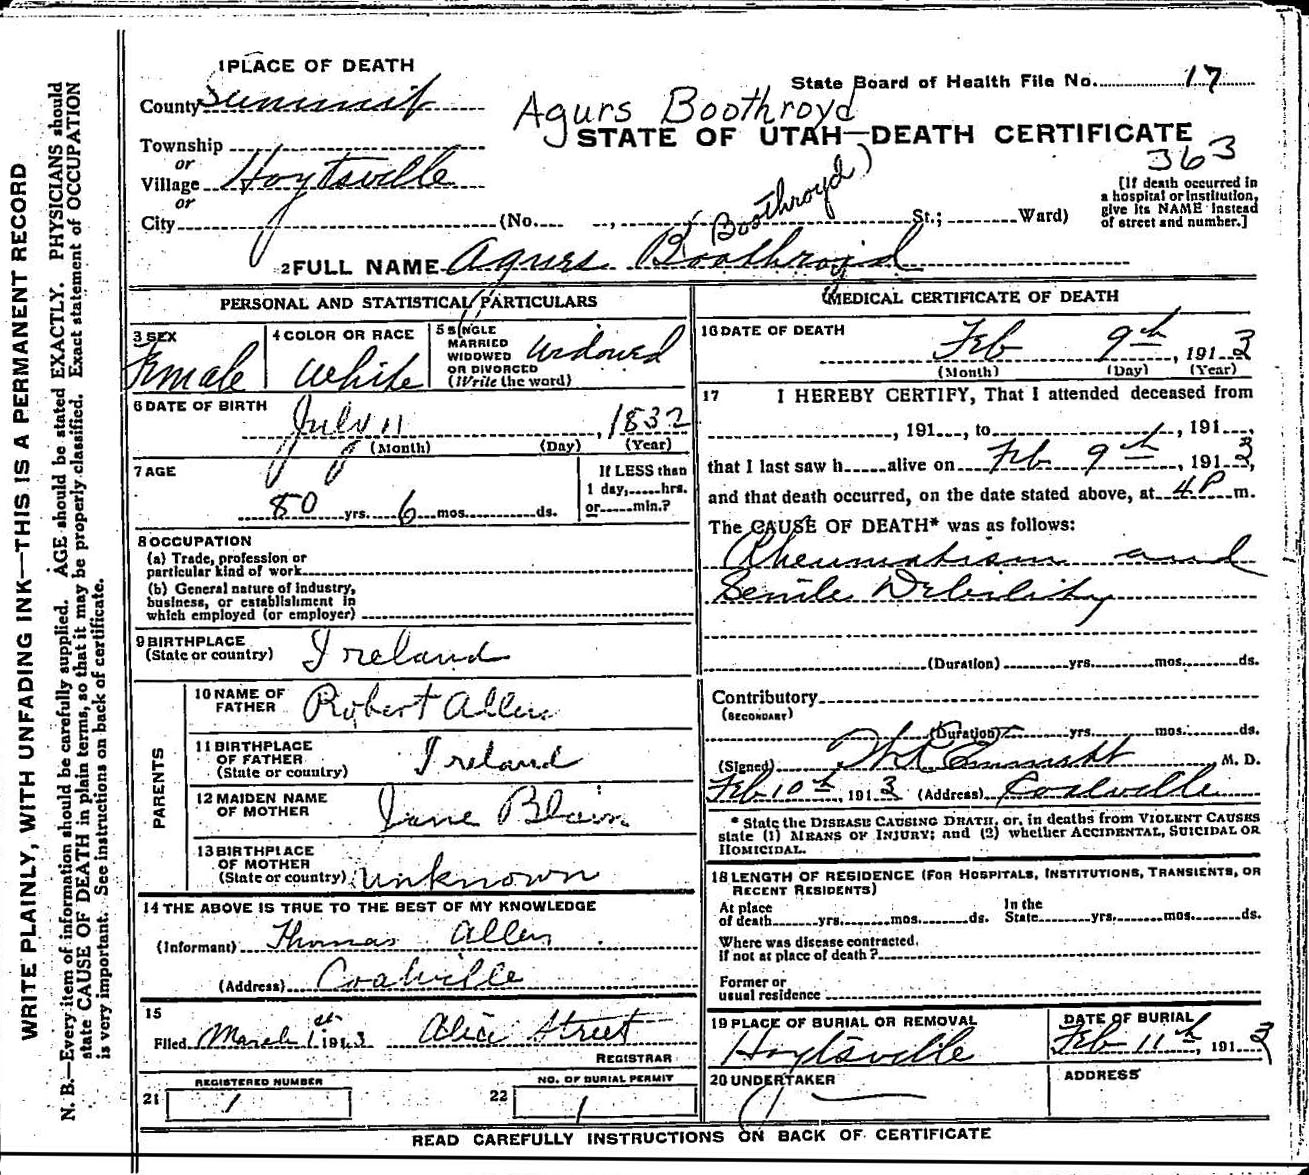 WRITE PLAINLY, WITH UNFADING INK—THIS IS A PERMANENT RECORD
N. B.—Every item of information should be carefully supplied. AGE should be stated EXACTLY. PHYSICIANS should
state CAUSE OF DEATH in plain terms, so that it may be properly classified. Exact statement of OCCUPATION
is very important. See instructions on back of certificate.
1 PLACE OF DEATH
State Board of Health File No. 17
County Summit
Agurs Boothroyd
STATE OF UTAH—DEATH CERTIFICATE
363
Township
or
Village Hoytsville
or
City (No. , St.; Ward)
(Boothroyd)
[If death occurred in
a hospital or institution,
give its NAME instead
of street and number.]
2 FULL NAME Agurs Boothroyd
PERSONAL AND STATISTICAL PARTICULARS
3 SEX
Female
4 COLOR OR RACE
White
5 SINGLE
MARRIED
WIDOWED
OR DIVORCED
(Write the word)
Widowed
6 DATE OF BIRTH
July 11, 1832
(Month) (Day) (Year)
7 AGE
80 yrs. 6 mos. ds.
If LESS than
1 day, hrs.
or min.?
8 OCCUPATION
(a) Trade, profession or
particular kind of work
(b) General nature of industry,
business, or establishment in
which employed (or employer)
9 BIRTHPLACE
(State or country) Ireland
PARENTS
10 NAME OF
FATHER Robert Allen
11 BIRTHPLACE
OF FATHER
(State or country) Ireland
12 MAIDEN NAME
OF MOTHER Jane Blain
13 BIRTHPLACE
OF MOTHER
(State or country) Unknown
14 THE ABOVE IS TRUE TO THE BEST OF MY KNOWLEDGE
(Informant) Thomas Allen
(Address) Coalville
15
Filed March 1st 1913 Alice Street
REGISTRAR
21 REGISTERED NUMBER
1
22 NO. OF BURIAL PERMIT
1
MEDICAL CERTIFICATE OF DEATH
16 DATE OF DEATH
Feb 9th, 1913
(Month) (Day) (Year)
17 I HEREBY CERTIFY, That I attended deceased from
, 191 , to , 191 ,
that I last saw h alive on Feb 9th, 1913,
and that death occurred, on the date stated above, at 4 P m.
The CAUSE OF DEATH* was as follows:
Rheumatism and
Senile Debility
(Duration) yrs. mos. ds.
Contributory
(SECONDARY)
(Duration) yrs. mos. ds.
(Signed) M. D.
Feb 10th, 1913 (Address) Coalville
* State the DISEASE CAUSING DEATH, or, in deaths from VIOLENT CAUSES
state (1) MEANS OF INJURY; and (2) whether ACCIDENTAL, SUICIDAL OR
HOMICIDAL.
18 LENGTH OF RESIDENCE (FOR HOSPITALS, INSTITUTIONS, TRANSIENTS, OR
RECENT RESIDENTS)
At place
of death yrs. mos. ds.
In the
State yrs. mos. ds.
Where was disease contracted,
if not at place of death?
Former or
usual residence
19 PLACE OF BURIAL OR REMOVAL
Hoytsville
DATE OF BURIAL
Feb 11th, 1913
20 UNDERTAKER
ADDRESS
READ CAREFULLY INSTRUCTIONS ON BACK OF CERTIFICATE